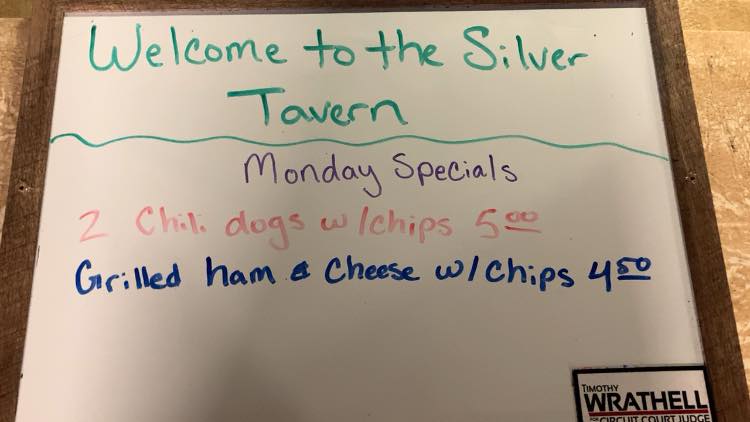 Welcome to the Silver
Tavern
Monday Specials
2 Chili dogs w/chips 5.00
Grilled ham & Cheese w/chips 4.50
TIMOTHY
WRATHELL
FOR CIRCUIT COURT JUDGE